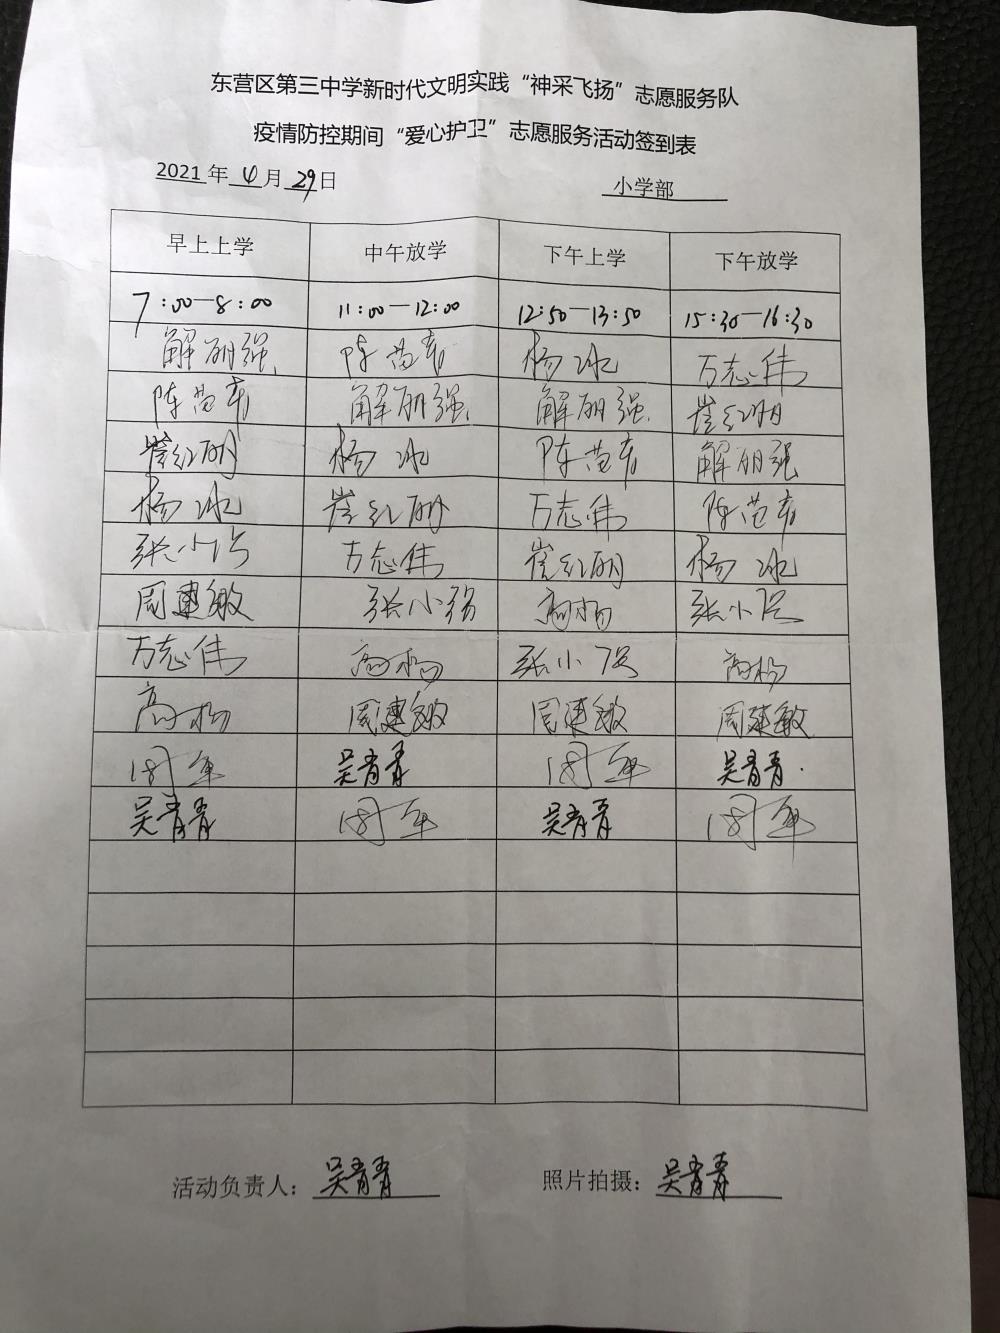 东营区第三中学新时代文明实践“神采飞扬”志愿服务队
疫情防控期间“爱心护卫”志愿服务活动签到表
2021年4月29日 小学部
早上上学 中午放学 下午上学 下午放学
7:00—8:00 11:00—12:00 12:50—13:50 15:30—16:30
解丽强 陈 杨冰 万志伟
陈 解丽强 解丽强 崔红明
崔红明 杨冰 陈 解丽强
杨冰 崔红明 万志伟 陈
张小强 万志伟 崔红明 杨冰
周建敏 张小强 高杨 张小强
万志伟 高杨 张小强 高杨
高杨 周建敏 周建敏 周建敏
周军 吴青青 周军 吴青青
吴青青 周军 吴青青 周军
活动负责人：吴青青 照片拍摄：吴青青